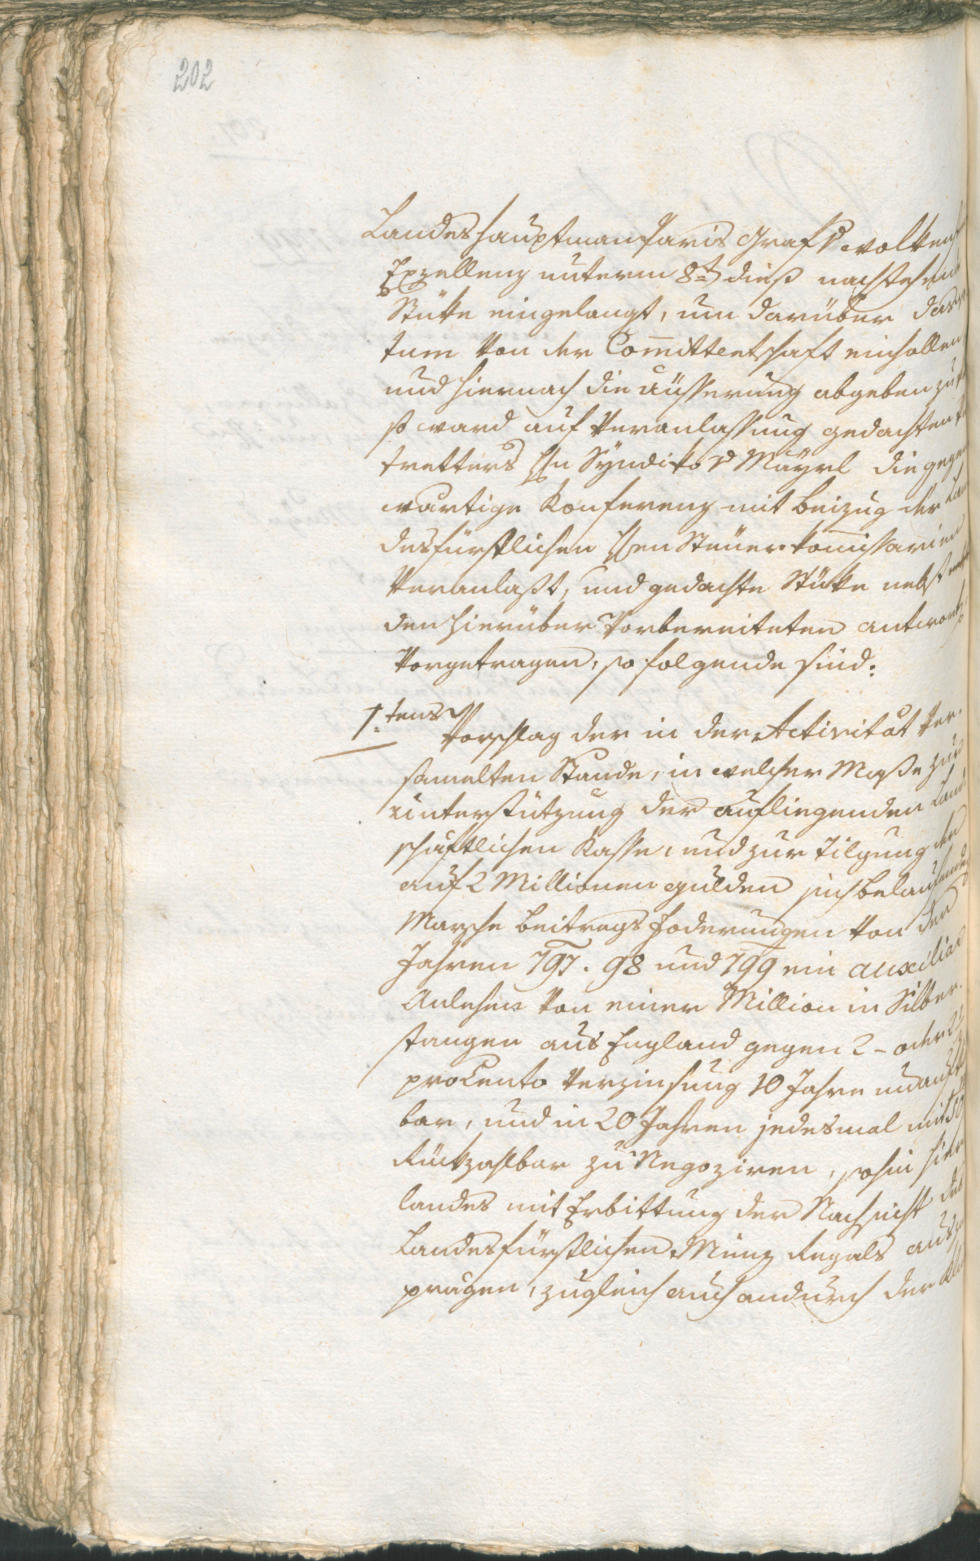 202
Landeshauptman Paris Graf v Wolkenst
Exzellenz unterm 8t dieß nachstehende
Stüke eingelangt, um darüber das
tum von der Committentschaft einhollen
und hiernach die äüsserung abgeben zu
so ward auf Veranlassung gedachten
tretters Hn Syndikos v Mayrl die gegen
wärtige Konferenz mit beizug der Lan
desfürstlichen Hen Steüer komissarien
Veranlaßt, und gedachte Stüke nebst
den hierüber Vorbereiteten antworts
Vorgetragen, so folgende sind:
1.tens Vorschlag der in der Activität Ver
samelten Stände, in welcher Maße zur
unterstützung der aufliegenden Land
schaftlichen Kasse, und zur Tilgung der
auf 2 Millionen gulden sich belaufenden
Marsche beitrags foderungen von den
Jahren 797. 98 und 799 ein auxiliar
Anlehen von einer Million in Silber
stangen aus England gegen 2 - oder 2½
procento Verzinsung 10 Jahre unaufk
bar, und in 20 Jahren jedesmal mit 50
Rükzahlbar zu Negoziren, sohin hier
landes mit Erbittung der Nachsicht des
Landesfürstlichen Münz Regals aus
prägen, zugleich auch andurch der